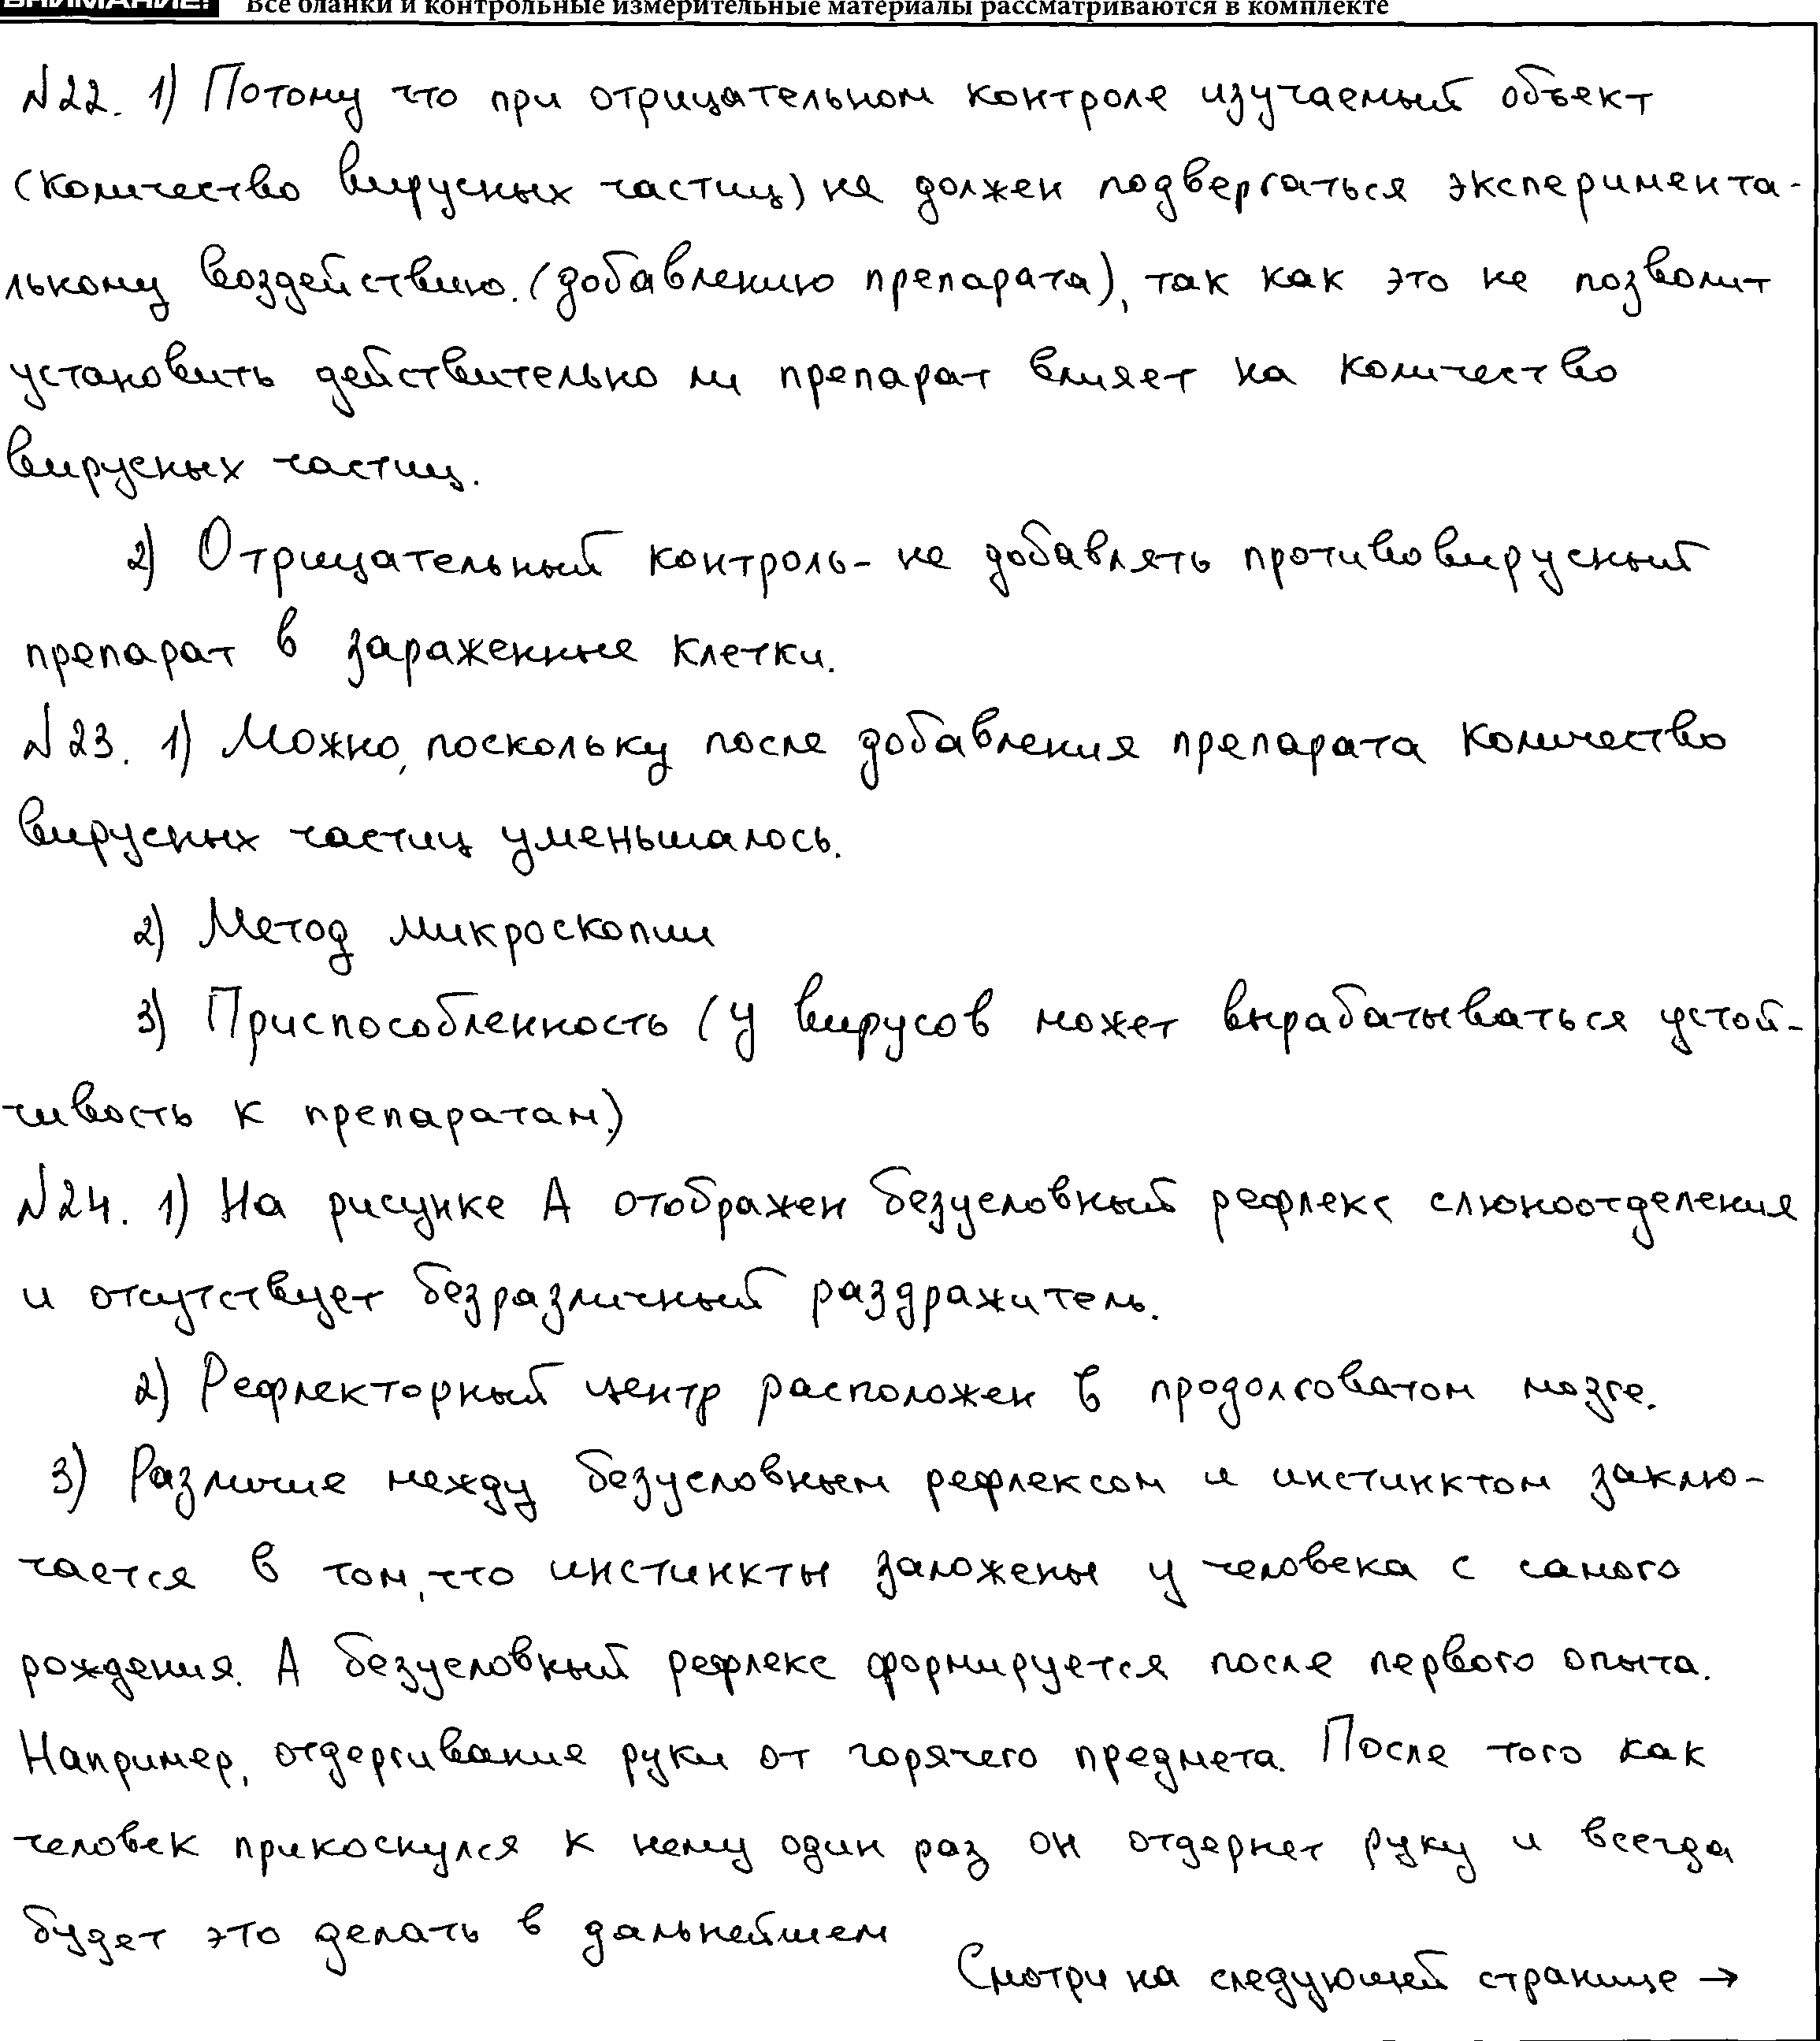 ВНИМАНИЕ! Все бланки и контрольные измерительные материалы рассматриваются в комплекте
№22. 1) Потому что при отрицательном контроле изучаемый объект
(количество вирусных частиц) не должен подвергаться эксперимента-
льному воздействию. (добавлению препарата), так как это не позволит
установить действительно ли препарат влияет на количество
вирусных частиц.
2) Отрицательный контроль- не добавлять противовирусный
препарат в зараженные клетки.
№23. 1) Можно, поскольку после добавления препарата количество
вирусных частиц уменьшалось.
2) Метод микроскопии
3) Приспособленность (у вирусов может вырабатываться устой-
чивость к препаратам.)
№24. 1) На рисунке А отображен безусловный рефлекс слюноотделения
и отсутствует безразличный раздражитель.
2) Рефлекторный центр расположен в продолговатом мозге.
3) Различие между безусловным рефлексом и инстинктом заклю-
чается в том, что инстинкты заложены у человека с самого
рождения. А безусловный рефлекс формируется после первого опыта.
Например, отдергивание руки от горячего предмета. После того как
человек прикоснулся к нему один раз он отдернет руку и всегда
будет это делать в дальнейшем
Смотри на следующей странице →